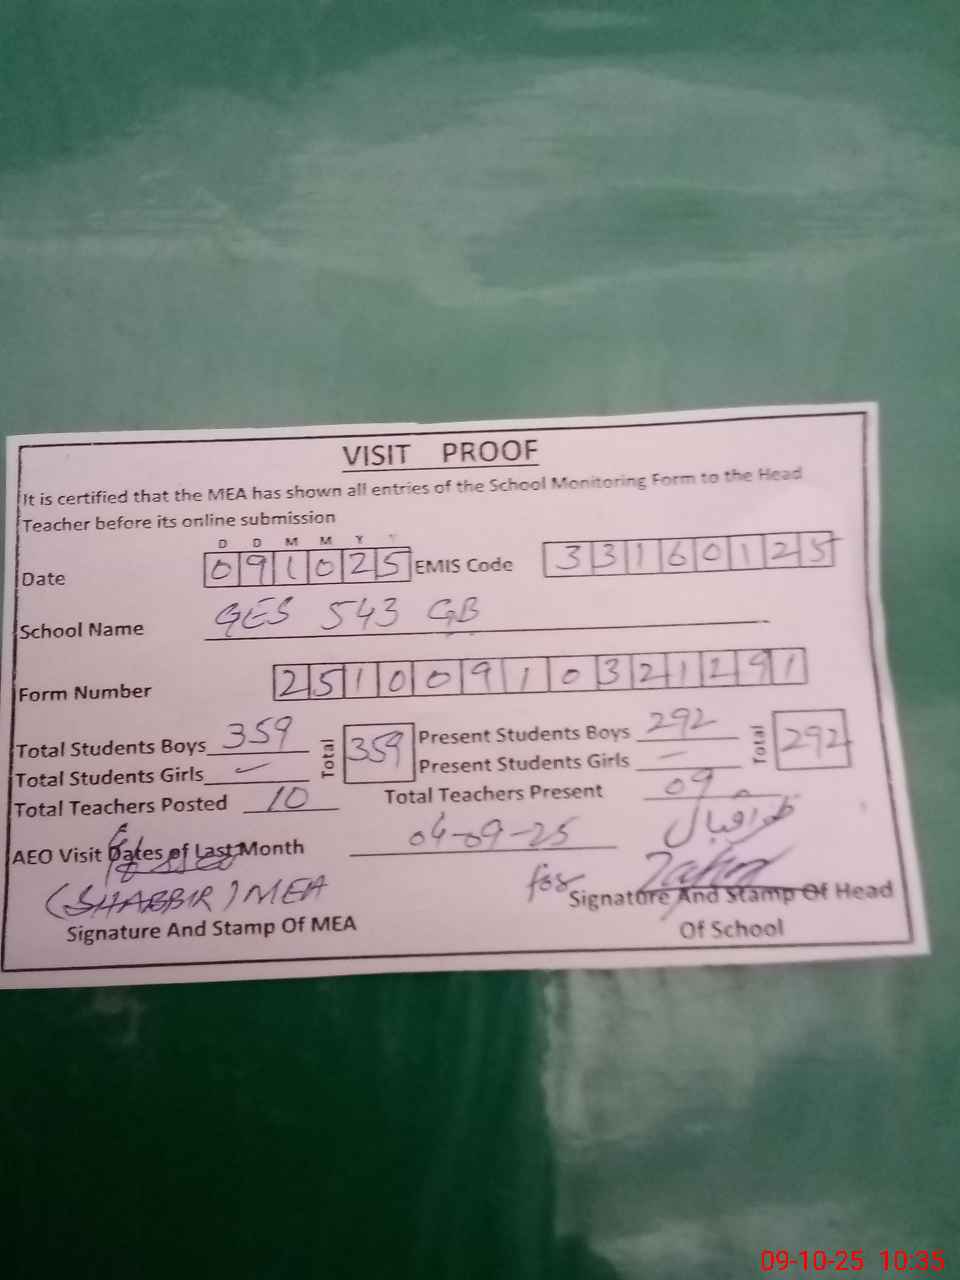 VISIT PROOF
It is certified that the MEA has shown all entries of the School Monitoring Form to the Head
Teacher before its online submission
D D M M Y Y
Date 091025 EMIS Code 33160125
School Name GES 543 GB
Form Number 25100910321291
Total Students Boys 359 Total 359 Present Students Boys 292 Total 292
Total Students Girls - Present Students Girls -
Total Teachers Posted 10 Total Teachers Present 09
AEO Visit Dates of Last Month 04-09-25
ظفر اقبال
(SHABBIR) MEA for
Signature And Stamp Of MEA Signature And Stamp Of Head
Of School
09-10-25 10:35